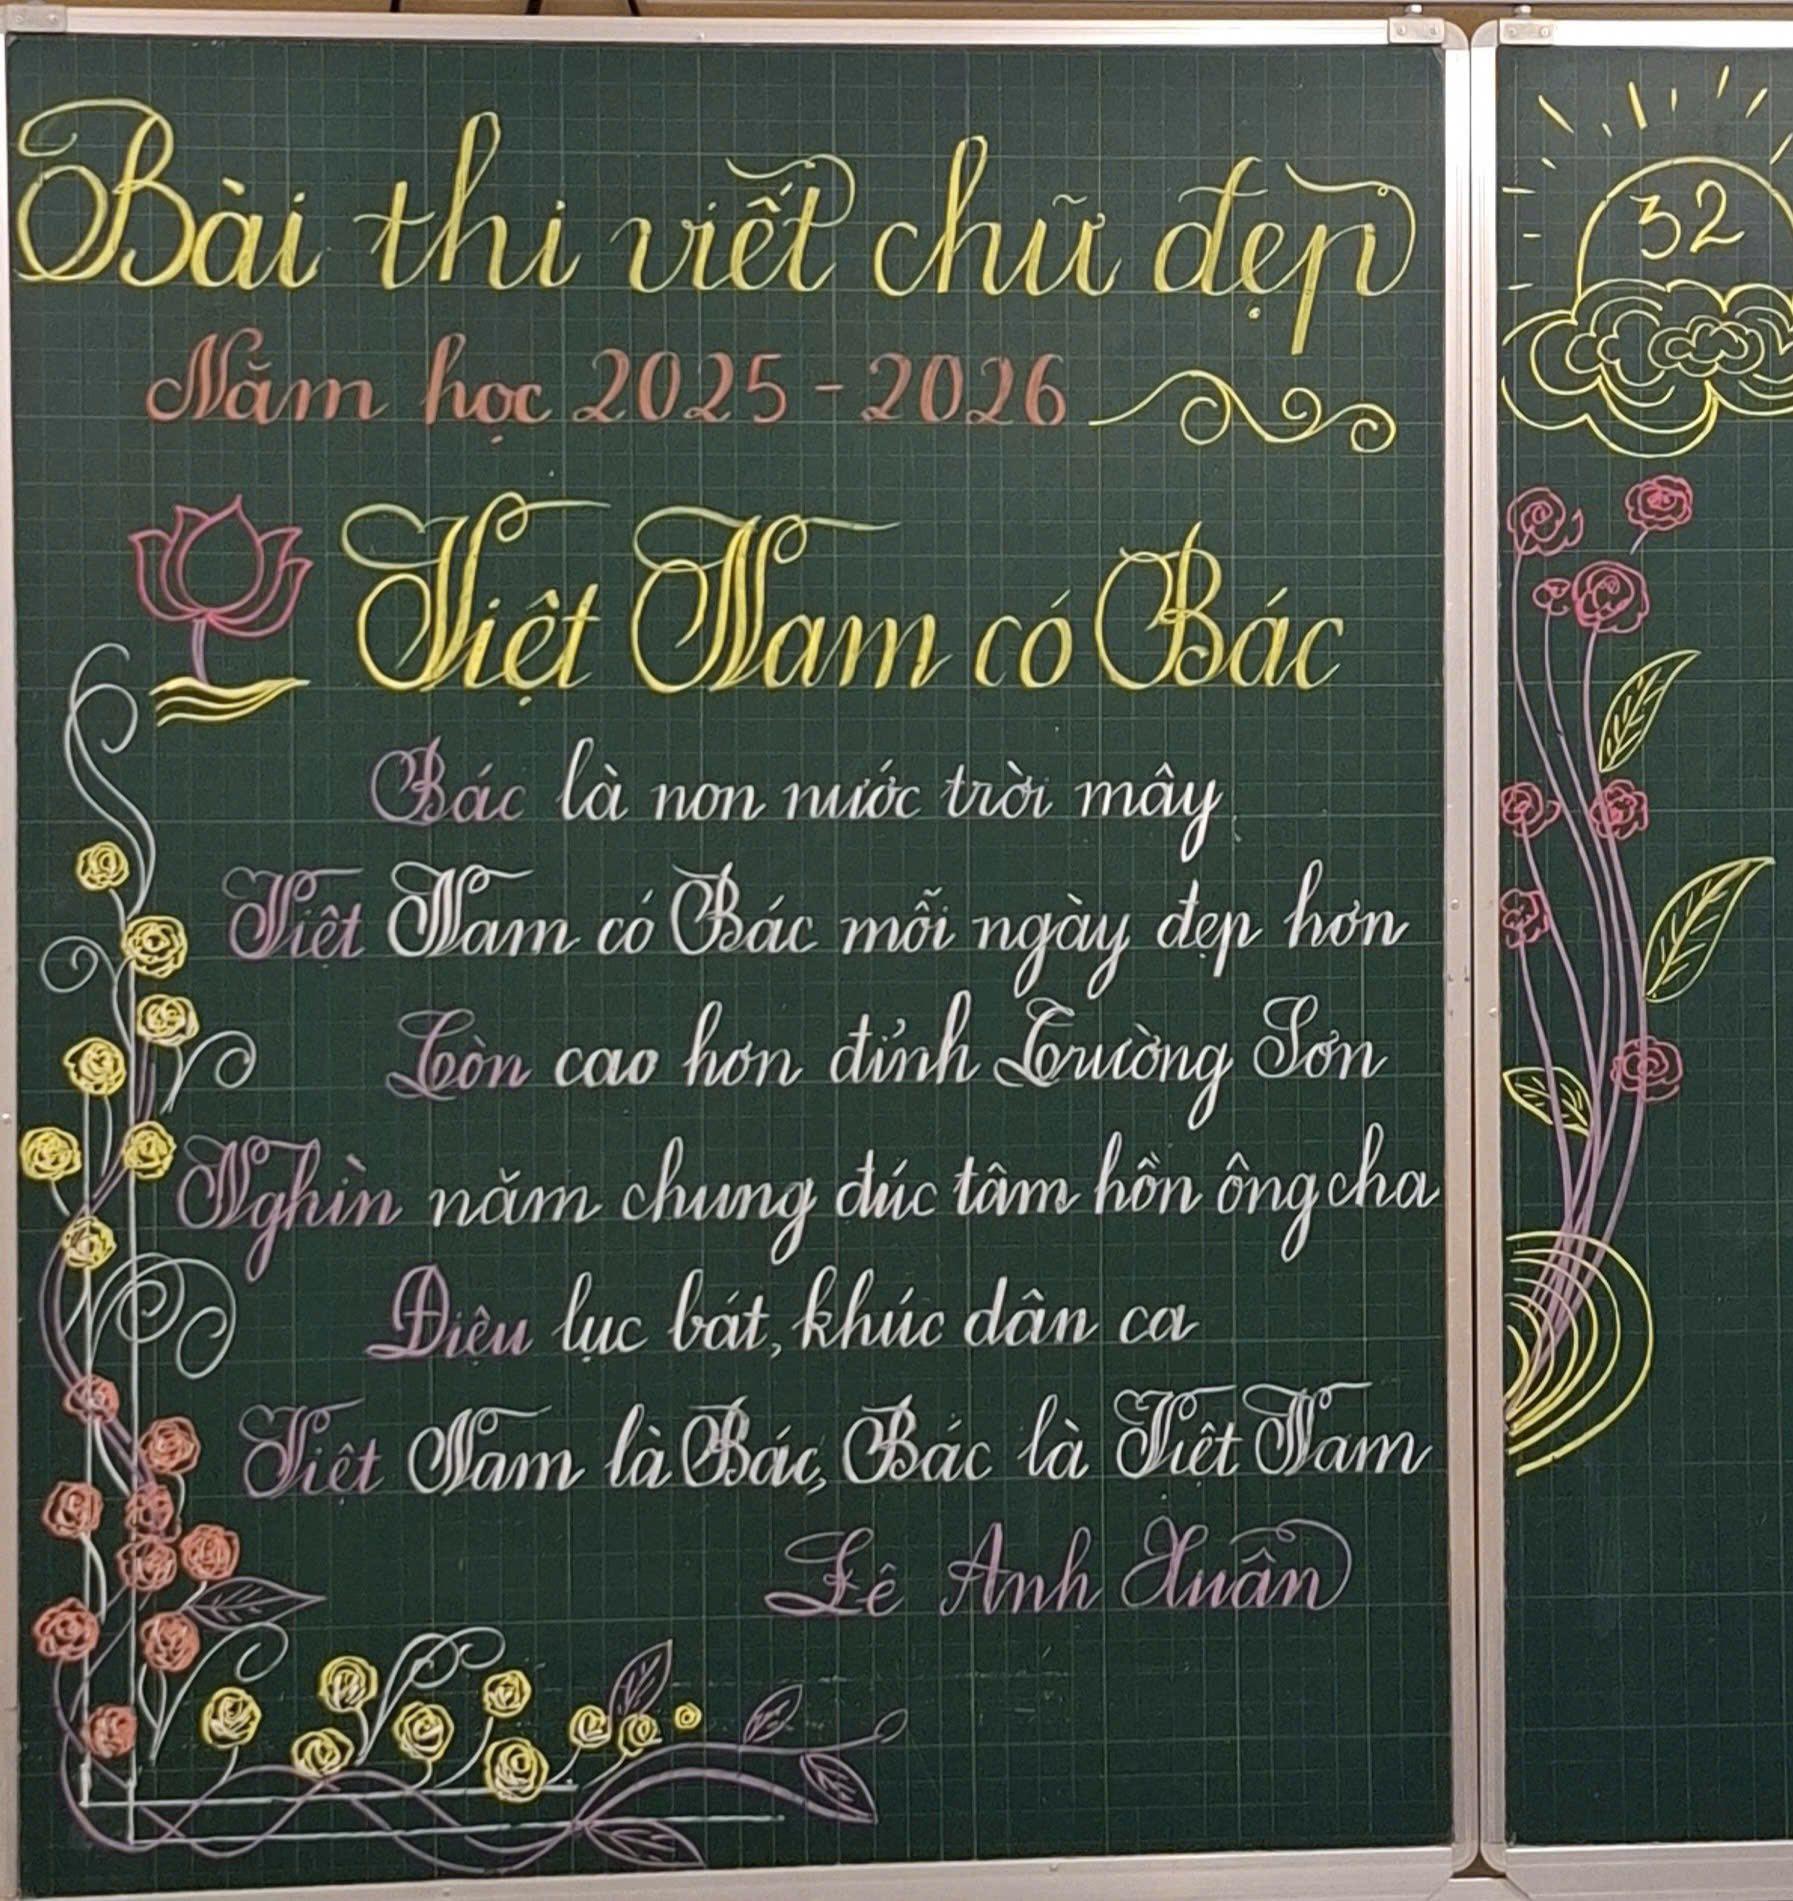 Bài thi viết chữ đẹp
Năm học 2025 - 2026
Việt Nam có Bác
Bác là non nước trời mây
Việt Nam có Bác mỗi ngày đẹp hơn
Còn cao hơn đỉnh Trường Sơn
Nghìn năm chung đúc tâm hồn ông cha
Điệu lục bát, khúc dân ca
Việt Nam là Bác, Bác là Việt Nam
Lê Anh Xuân
32